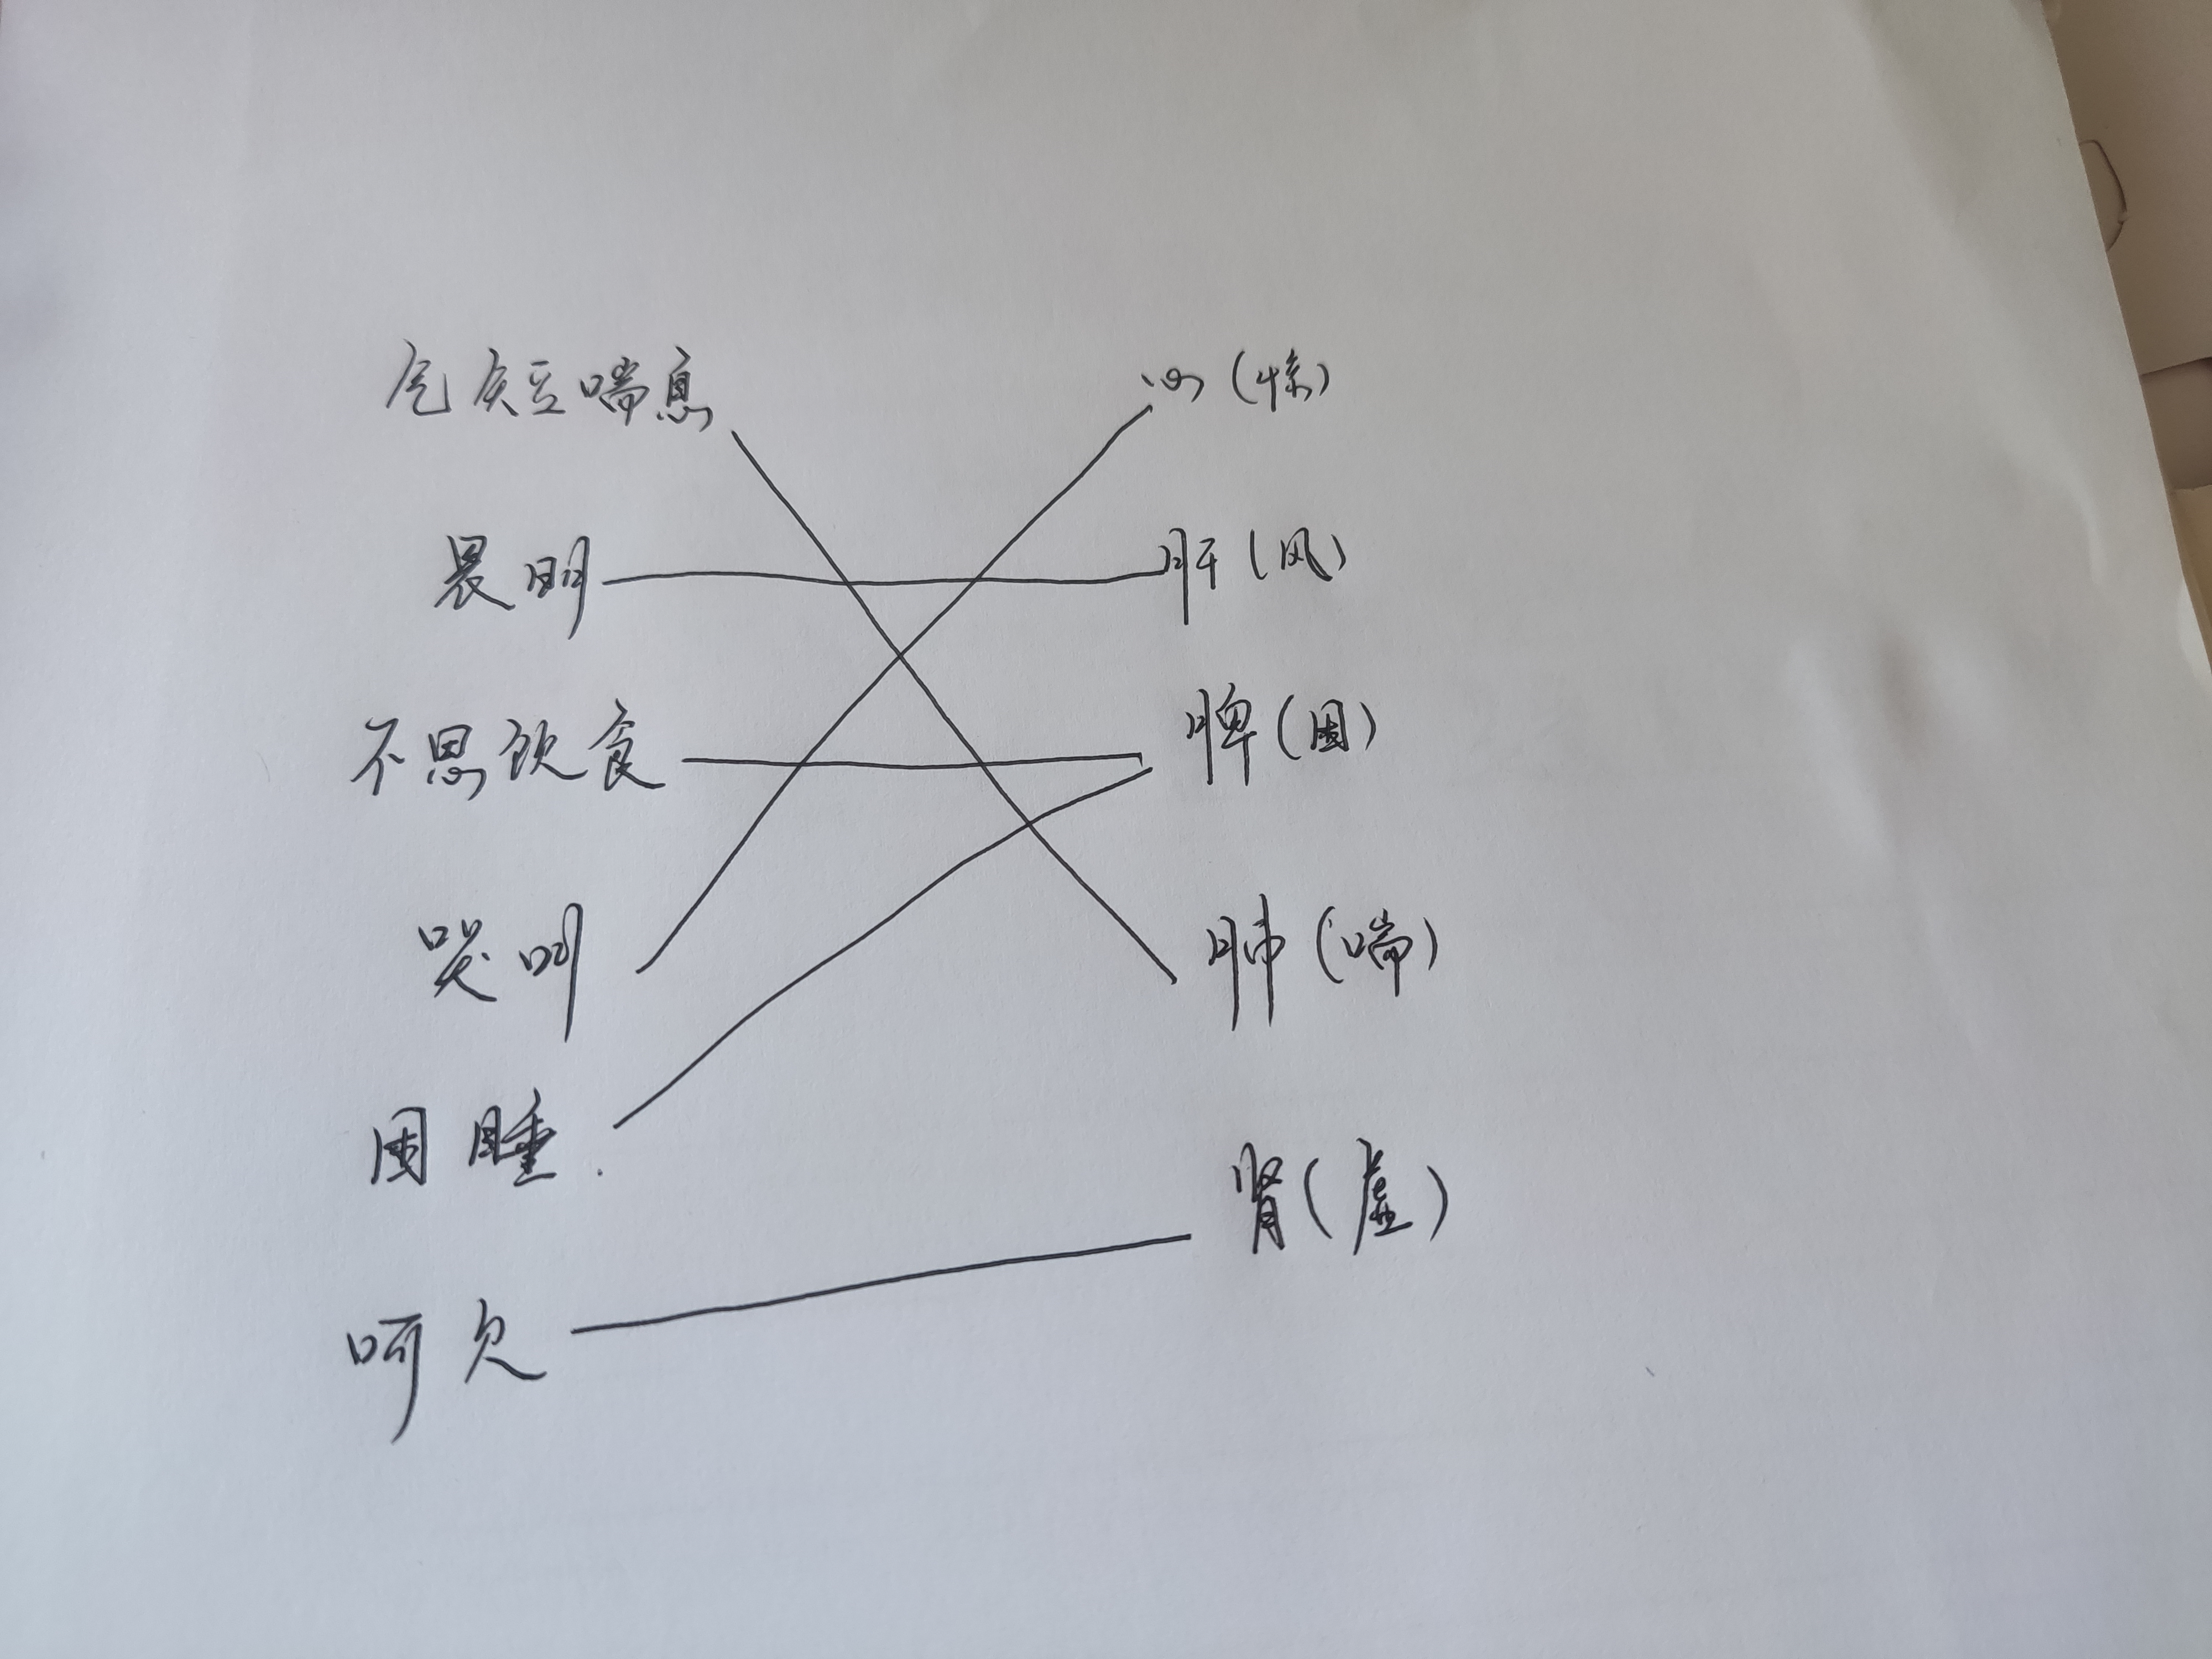 气短喘息
心(惊)
晨明
肝(风)
不思饮食
脾(困)
哭叫
肺(喘)
困睡
肾(虚)
呵欠